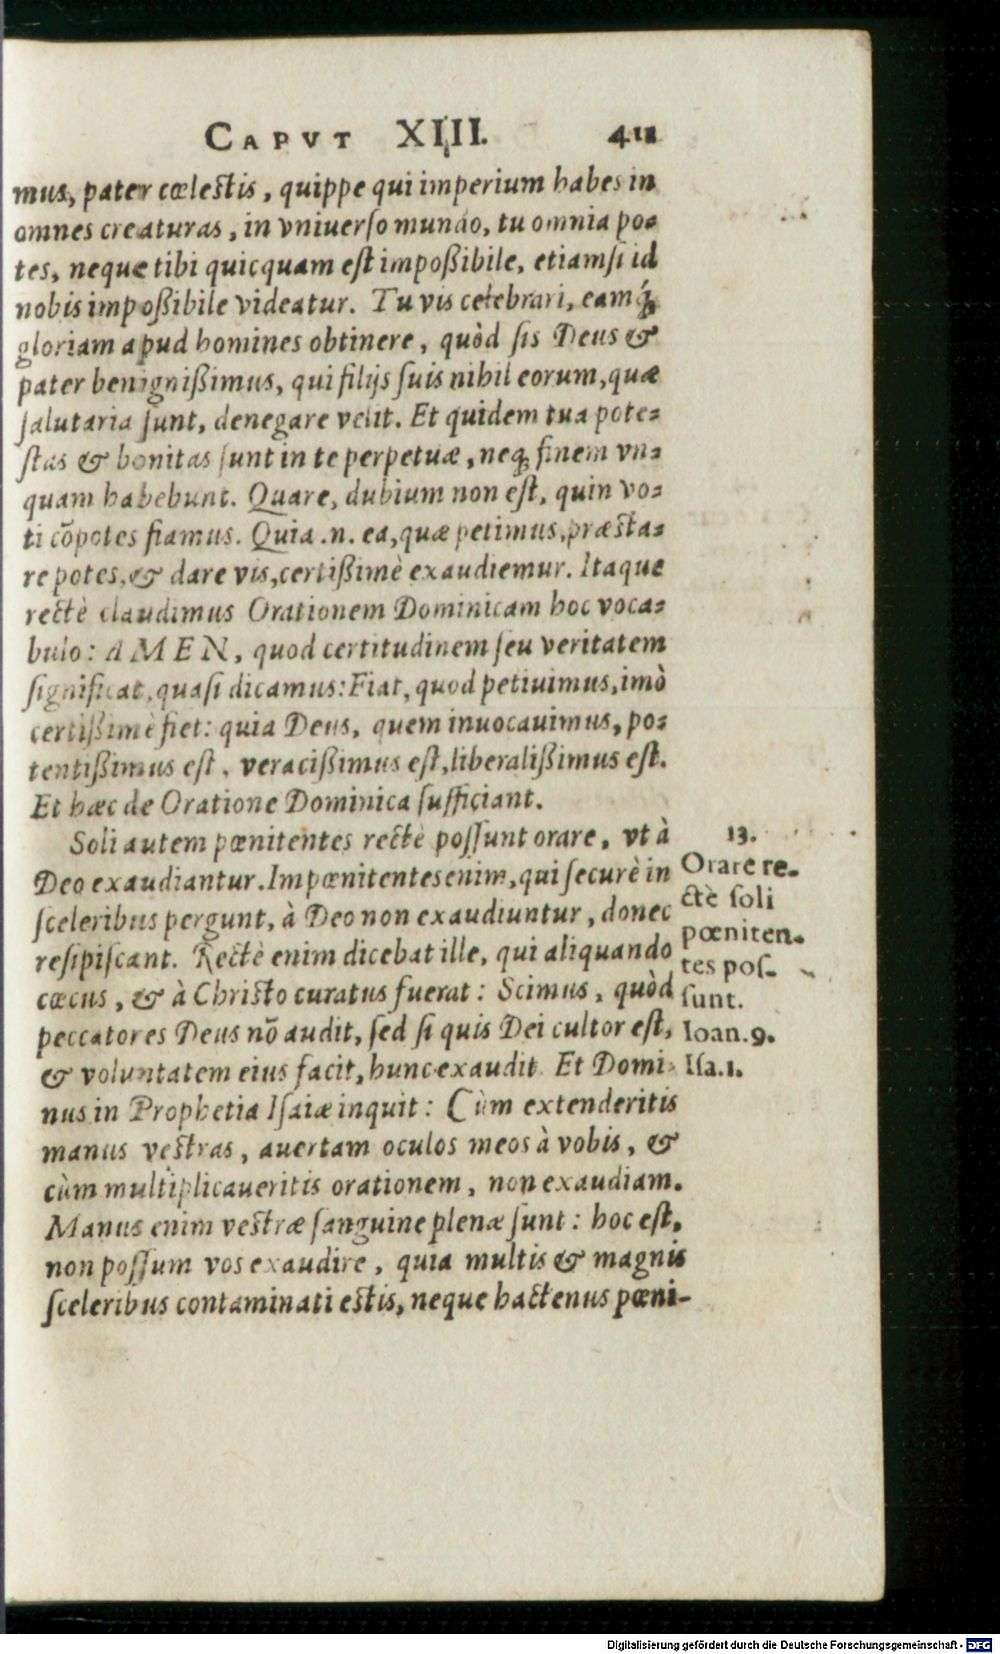 CAPVT XIIII. 411
mus, pater cœlestis, quippe qui imperium habes in
omnes creaturas, in vniuerſo mundo, tu omnia po-
tes, neque tibi quicquam eſt impoßibile, etiamſi id
nobis impoßibile videatur. Tu vis celebrari, eamq́;
gloriam apud homines obtinere, quòd ſis Deus &
pater benignißimus, qui filijs ſuis nihil eorum, quæ
ſalutaria ſunt, denegare velit. Et quidem tua pote-
ſtas & bonitas ſunt in te perpetuæ, neq; finem vn-
quam habebunt. Quare, dubium non eſt, quin vo-
ti cõpotes fiamus. Quia .n. ea, quæ petimus, præsta-
re potes, & dare vis, certißimè exaudiemur. Itaque
rectè claudimus Orationem Dominicam hoc voca-
bulo: AMEN, quod certitudinem ſeu veritatem
ſignificat, quaſi dicamus: Fiat, quod petiuimus, imò
certißimè fiet: quia Deus, quem inuocauimus, po-
tentißimus eſt, veracißimus eſt, liberalißimus eſt.
Et hæc de Oratione Dominica ſufficiant.
Soli autem pœnitentes rectè poſſunt orare, vt à
Deo exaudiantur. Impœnitentes enim, qui ſecurè in
ſceleribus pergunt, à Deo non exaudiuntur, donec
reſipiſcant. Rectè enim dicebat ille, qui aliquando
cœcus, & à Christo curatus fuerat: Scimus, quòd
peccatores Deus nõ audit, ſed ſi quis Dei cultor eſt,
& voluntatem eius facit, hunc exaudit. Et Domi-
nus in Prophetia Iſaiæ inquit: Cùm extenderitis
manus vestras, auertam oculos meos à vobis, &
cùm multiplicaueritis orationem, non exaudiam.
Manus enim vestræ ſanguine plenæ ſunt: hoc eſt,
non poſſum vos exaudire, quia multis & magnis
ſceleribus contaminati estis, neque hactenus pœni-
13.
Orare re-
ctè ſoli
pœniten-
tes poſ-
ſunt.
Ioan. 9.
Iſa. 1.
Digitalisierung gefördert durch die Deutsche Forschungsgemeinschaft - DFG